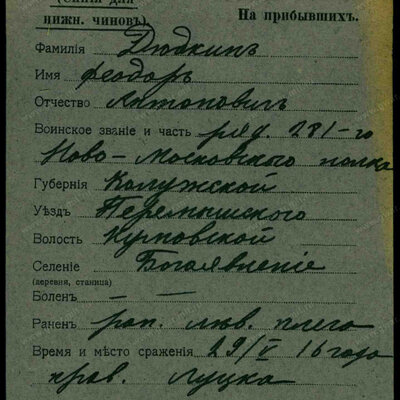 (Синій для
нижн. чиновъ).
На прибывшихъ.
Фамилія Дюдкинъ
Имя Феодоръ
Отчество Антоновичъ
Воинское званіе и часть ряд. 281-го
Ново-Московского полка
Губернія Калужской
Уѣздъ Перемышского
Волость
Селеніе Богоявленіе
(деревня, станица)
Боленъ — —
Раненъ ран. лѣв. плеча
Время и мѣсто сраженія 29/V 16 года
Луцка